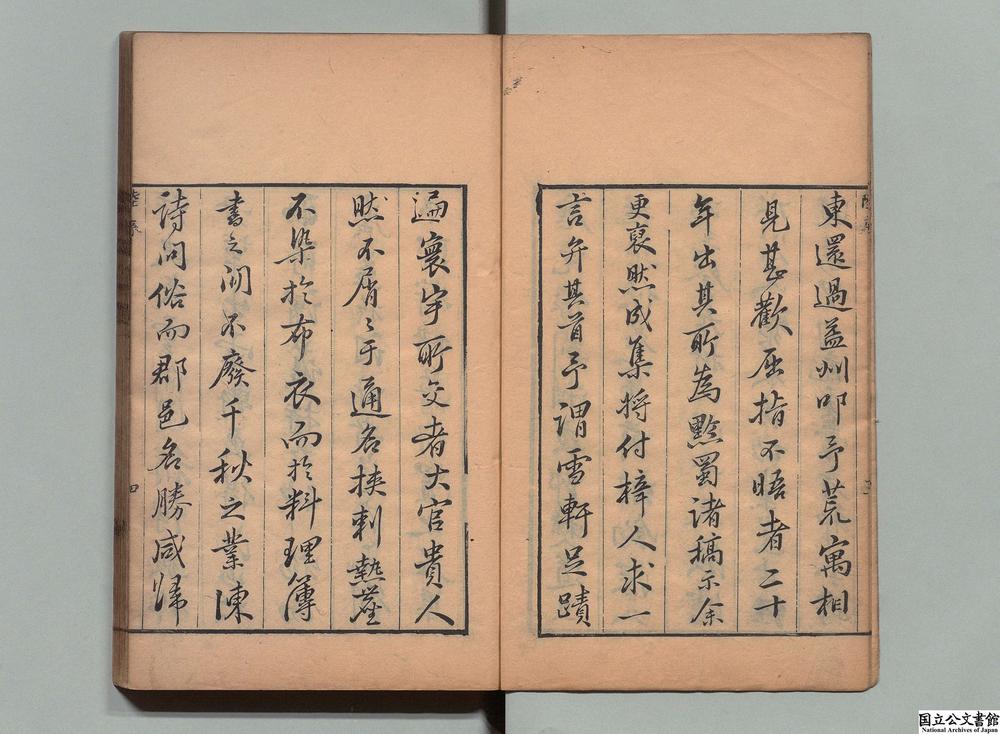 東還過益州叩予荒寓相
見甚歡屈指不晤者二十
年出其所為黔蜀諸稿示余
更裒然成集將付梓人求一
言弁其首予謂雪軒足蹟
遍寰宇所交者大官貴人
然不屑〻于通名挾刺熱
不染於布衣而於料理簿
書之間不廢千秋之業陳
詩問俗而郡邑名勝咸歸
四
国立公文書館
National Archives of Japan